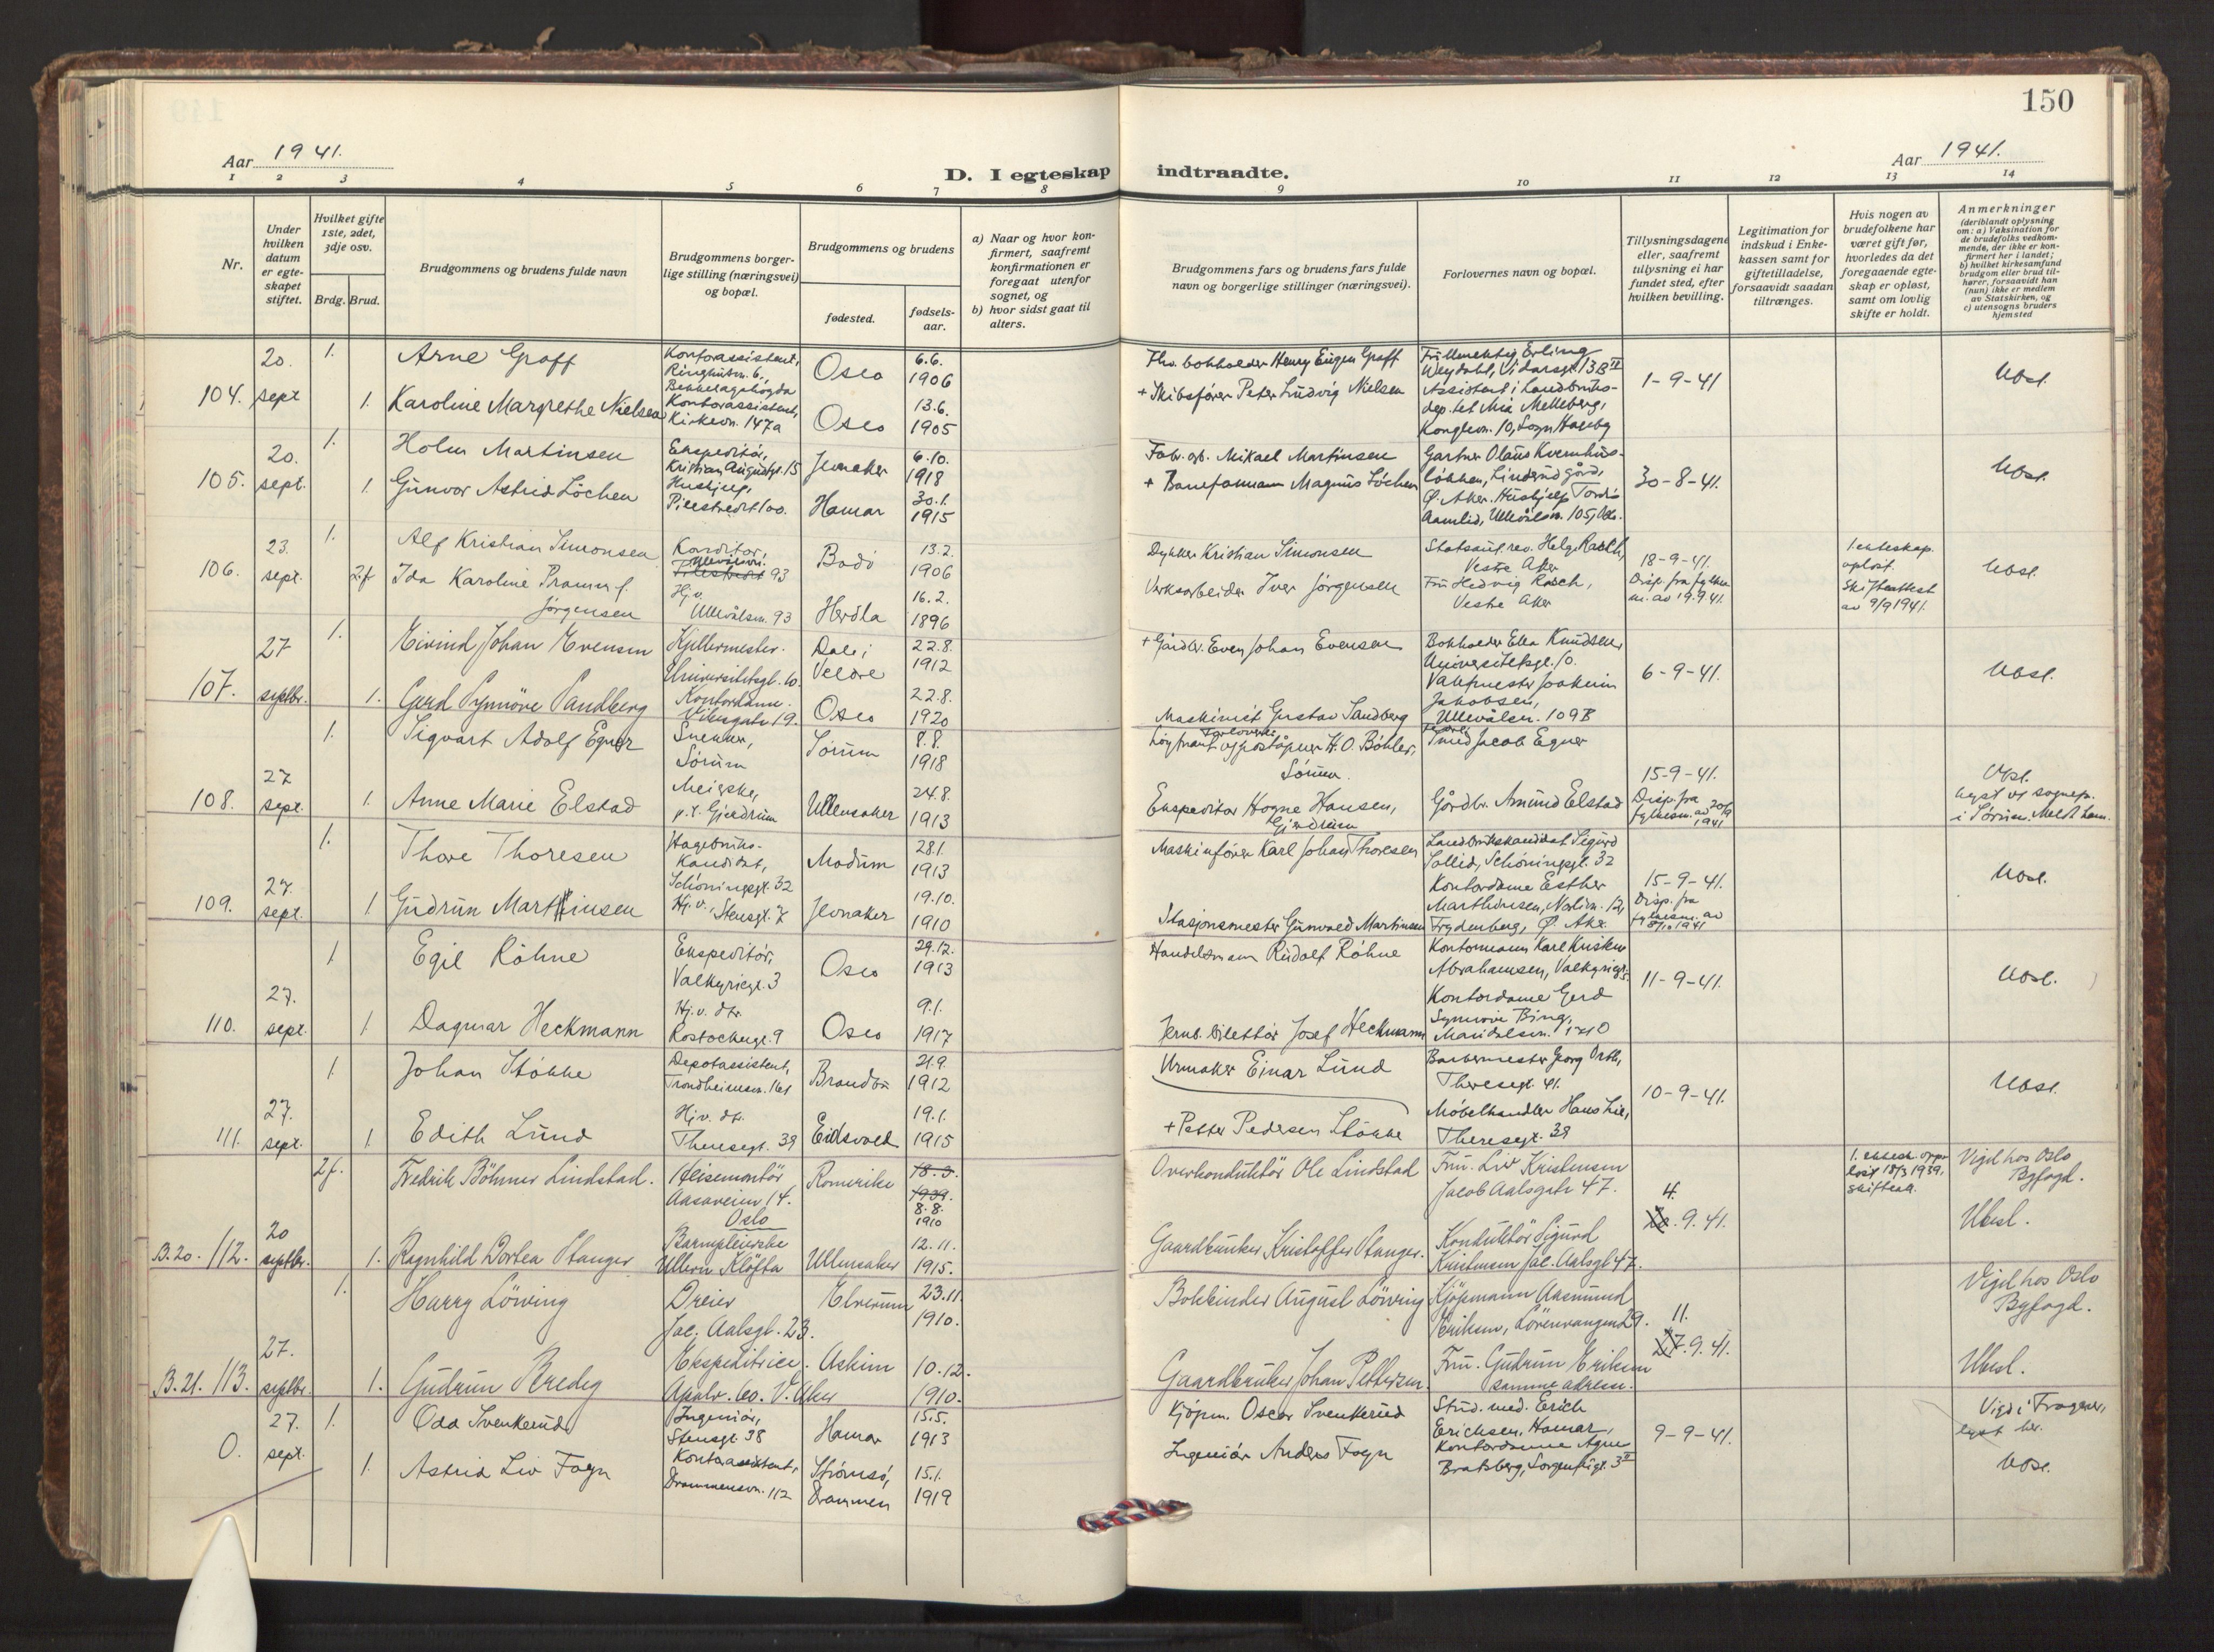 150
Aar 1941.
D. I egteskap indtraadte.
Aar 1941.
1 2 3 4 5 6 7 8 9 10 11 12 13 14
Nr.
Under hvilken datum er egteskapet stiftet.
Hvilket gifte 1ste, 2det, 3dje osv.
Brdg. Brud.
Brudgommens og brudens fulde navn
Brudgommens borgerlige stilling (næringsvei) og bopæl.
Brudgommens og brudens
fødested.
fødselsaar.
a) Naar og hvor konfirmert, saafremt konfirmationen er foregaat utenfor sognet, og
b) hvor sidst gaat til alters.
Brudgommens fars og brudens fars fulde navn og borgerlige stillinger (næringsvei).
Forlovernes navn og bopæl.
Tillysningsdagene eller, saafremt tillysning ei har fundet sted, efter hvilken bevilling.
Legitimation for indskud i Enkekassen samt for giftetilladelse, forsaavidt saadan tiltrænges.
Hvis nogen av brudefolkene har været gift før, hvorledes da det foregaaende egteskap er opløst, samt om lovlig skifte er holdt.
Anmerkninger
(deriblandt oplysning om: a) Vaksination for de brudefolks vedkommende, der ikke er konfirmert her i landet; b) hvilket kirkesamfund brudgom eller brud tilhører, forsaavidt han (hun) ikke er medlem av Statskirken, og c) utensogns bruders hjemsted
104. 20. sept
1. Arne Graff
Kontorassistent, Ringhusvn. 6, Bekkelagshøgda
Oslo
6.6. 1906
Fhv. bokholder Henry Eugen Graff
Fullmektig Erling Weydahl, Vidarsgt. 13 B
1-9-41
Ubsl.
1. Karoline Margrethe Nielsen
Kontorassistent, Kirkevn. 147a
Oslo
13.6. 1905
+ Skibsfører Peter Ludvig Nielsen
Assistent i Landbruks-dep.tet Mia Melleberg, Konglevn. 10, Sogn Haveby
105. 20. sept.
1. Holm Martinsen
Ekspeditør, Kristian Augustgt. 15
Jevnaker
6.10. 1918
Fabr. arb. Mikael Martinsen
Gartner Olaus Kvernhusløkken, Linderud gård, Ø. Aker.
30-8-41.
Ubsl.
1. Gunvor Astrid Löchen
Hushjelp, Pilestredet 100.
Hamar
30.1. 1915
+ Baneformann Magnus Löchen
Hushjelp Tordis Aamlid, Ullevålsvn. 105, Oslo.
106. 23. sept.
1. Alf Kristian Simonsen
Konditor, Ullevålsvn. 93
Bodö
13.2. 1906
Dykker Kristian Simonsen
Statsaut. rev. Helge Rasch, Vestre Aker
18-9-41.
Disp. fra fylkesm. av 19.9.41.
1 ekteskap. opløst. Skifteattest av 9/9 1941.
Ubsl.
2 f. Ida Karoline Pramm f. Jörgensen
Hj.v. Ullevålsvn. 93
Herdla
16.2. 1896
Verksarbeider Iver Jörgensen
Fru Hedvig Rasch, Vestre Aker
107. 27 septbr.
1. Eivind Johan Evensen
Kjellermester. Universitetsgt. 10.
Dal i Veldre
22.8. 1912
+ Gårdbr. Even Johan Evensen
Bokholder Ella Knudsen, Universitetsgt. 10.
6-9-41.
Ubsl.
1. Gerd Synnöve Sandberg
Kontordame. Vibesgate 19.
Oslo
22.8. 1920
Maskinist Gustav Sandberg
Vaktmester Joakim Jakobsen, Ullevålsvn. 109 B
108. 27 sept.
1. Sigvart Adolf Egner
Snekker, Sörum
Sörum
8.8. 1918
Forlovere:
Løytnant og poståpner H. O. Böhler, Sörum.
Smed Jacob Egner
15-9-41.
Disp. fra fylkesm. av 20/9 1941
1. Anne Marie Elstad
Meierske, p.t. Gjerdrum
Ullensaker
24.8. 1913
Ekspeditør Hogne Hansen, Gjerdrum
Gårdbr. Amund Elstad
lyst og sognep. i Sörum.
109. 27. sept.
1. Thore Thoresen
Hagebruks-kandidat, Schöningsgt. 32
Modum
28.1. 1913
Maskinfører Karl Johan Thoresen
Landbrukskandidat Sigurd Sollid, Schöningsgt. 32
15-9-41.
Disp. fra fylkesm. av 8/10 1941
Ubsl.
1. Gudrun Martinsen
Hj.v., Stensgt. 7
Jevnaker
19.10. 1910
Stasjonsmester Gunvald Martinsen
Kontordame Esther Marthinsen, Frydenberg, Ø. Aker.
110. 27. sept.
1 Egil Röhne
Ekspeditör, Valkyriegt. 3
Oslo
29.12. 1913
Handelsmann Rudolf Röhne
Kontormann Karl Kristian Abrahamsen, Valkyriegt. 5.
11-9-41.
Ubsl.
1 Dagmar Heckmann
Hj.v. dtr. Rostockergt. 9
Oslo
9.1. 1917
Jernb. Josef Heckmann
Kontordame Gerd Synnöve Bing,
111. 27. sept.
1 Johan Stökke
Depotassistent, Trondheimsvn. 161
Brandbu
21.9. 1912
Urmaker Einar Lund
Barbermester Georg Orth, Theresegt. 41.
10-9-41.
Ubsl.
1 Edith Lund
Hj.v. dtr. Theresegt. 39
Eidsvold
19.1. 1915
+ Petter Pedersen Stökke
Möbelhandler Hans Lie, Theresegt. 39
B. 20. 112. 20 septbr.
2 f. Fredrik Böhmer Lindstad.
Heisemontör Aasaveien 14. Oslo
Romerike
18-3. 1939.
8.8. 1910
Overkonduktör Ole Lindstad
Fru. Liv Kristensen Jacob Aalsgate 47.
4. 9. 41.
1. ektesk. oppløst 18/3 1939. skifteatt.
Vigd hos Oslo Byfogd.
Ubesl.
1. Ragnhild Dortea Stanger
Barnepleierske Ullern Klöfta
Ullensaker
12.11. 1915.
Gaardbruker Kristoffer Stanger.
Konduktör Sigurd Kristensen Jac. Aalsgt 47.
B. 21. 113. 27. septbr.
1. Harry Löwing
Dreier Jac. Aalsgt. 23.
Elverum
23.11. 1910.
Bokbinder August Löwing
Kjöpmann Aasmund Eriksen, Lörenvangen 29.
11. 9. 41.
Vigd hos Oslo Byfogd.
Ubesl.
1. Gudrun Bredeg
Ekspeditrice. Apalv. 60. V. Aker
Askim
10.12. 1910.
Gaardbruker Johan Pettersen.
Fru. Gudrun Eriksen samme adresse.
0. 27. sept.
1. Odd Svenkerud
Ingeniör, Stensgt. 38
Hamar
15.5. 1913
Kjöpm. Oscar Svenkerud
Stud. med. Erich Erichsen, Hamar,
9-9-41.
Vigd i Frogner, lyst her.
Ubsl.
1. Astrid Liv Fogn
Kontorassistent, Drammensvn. 112
Strömsö, Drammen
15.1. 1919
Ingeniör Anders Fogn
Kontordame Agnes Bratsberg, Sorgenfrigt. 3